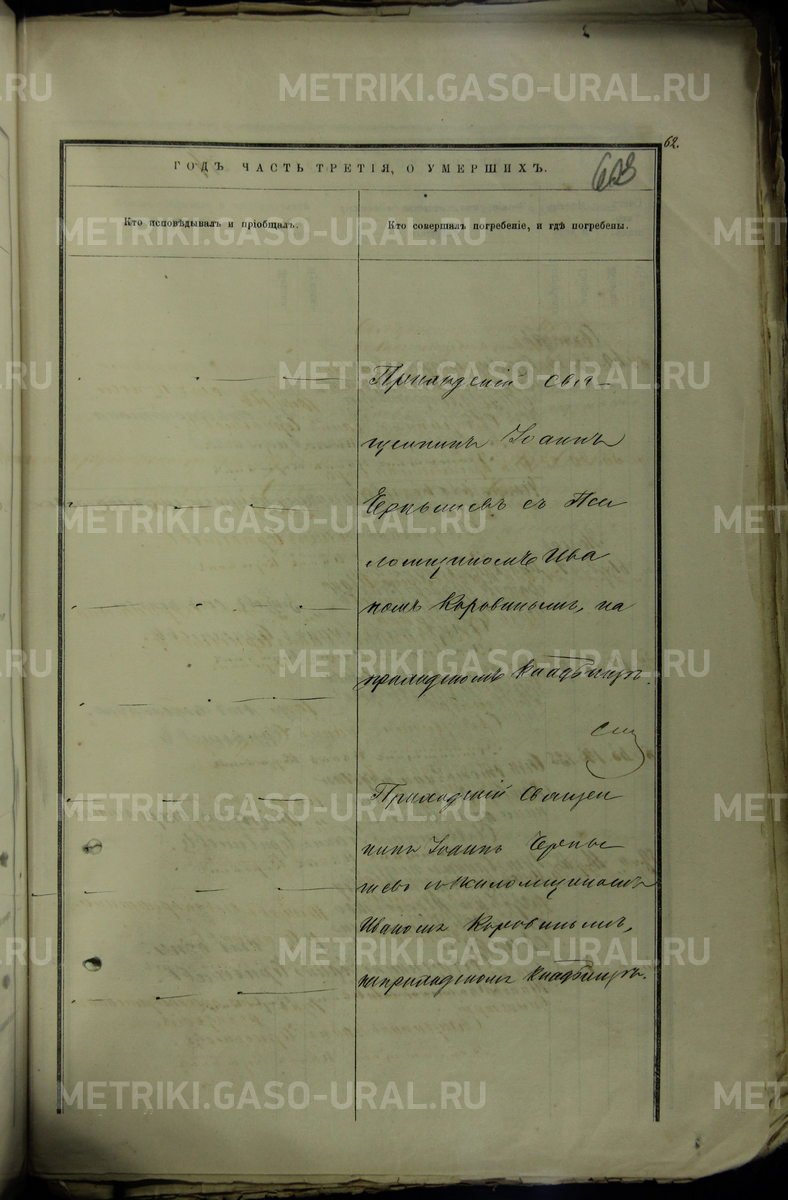 62.
ГОДЪ ЧАСТЬ ТРЕТІЯ, О УМЕРШИХЪ.
Кто исповѣдывалъ и пріобщалъ.
Кто совершалъ погребеніе, и гдѣ погребены.
Приходскій свя-
щенникъ Іоаннъ
Чернышевъ съ Пса
ломщикомъ Ива
номъ Коровинымъ, на
приходскомъ кладбищѣ.
Приходскій Священ
никъ Іоаннъ Черны
шевъ съ псаломщикомъ
Иваномъ Коровинымъ,
на приходскомъ кладбищѣ.
METRIKI.GASO-URAL.RU